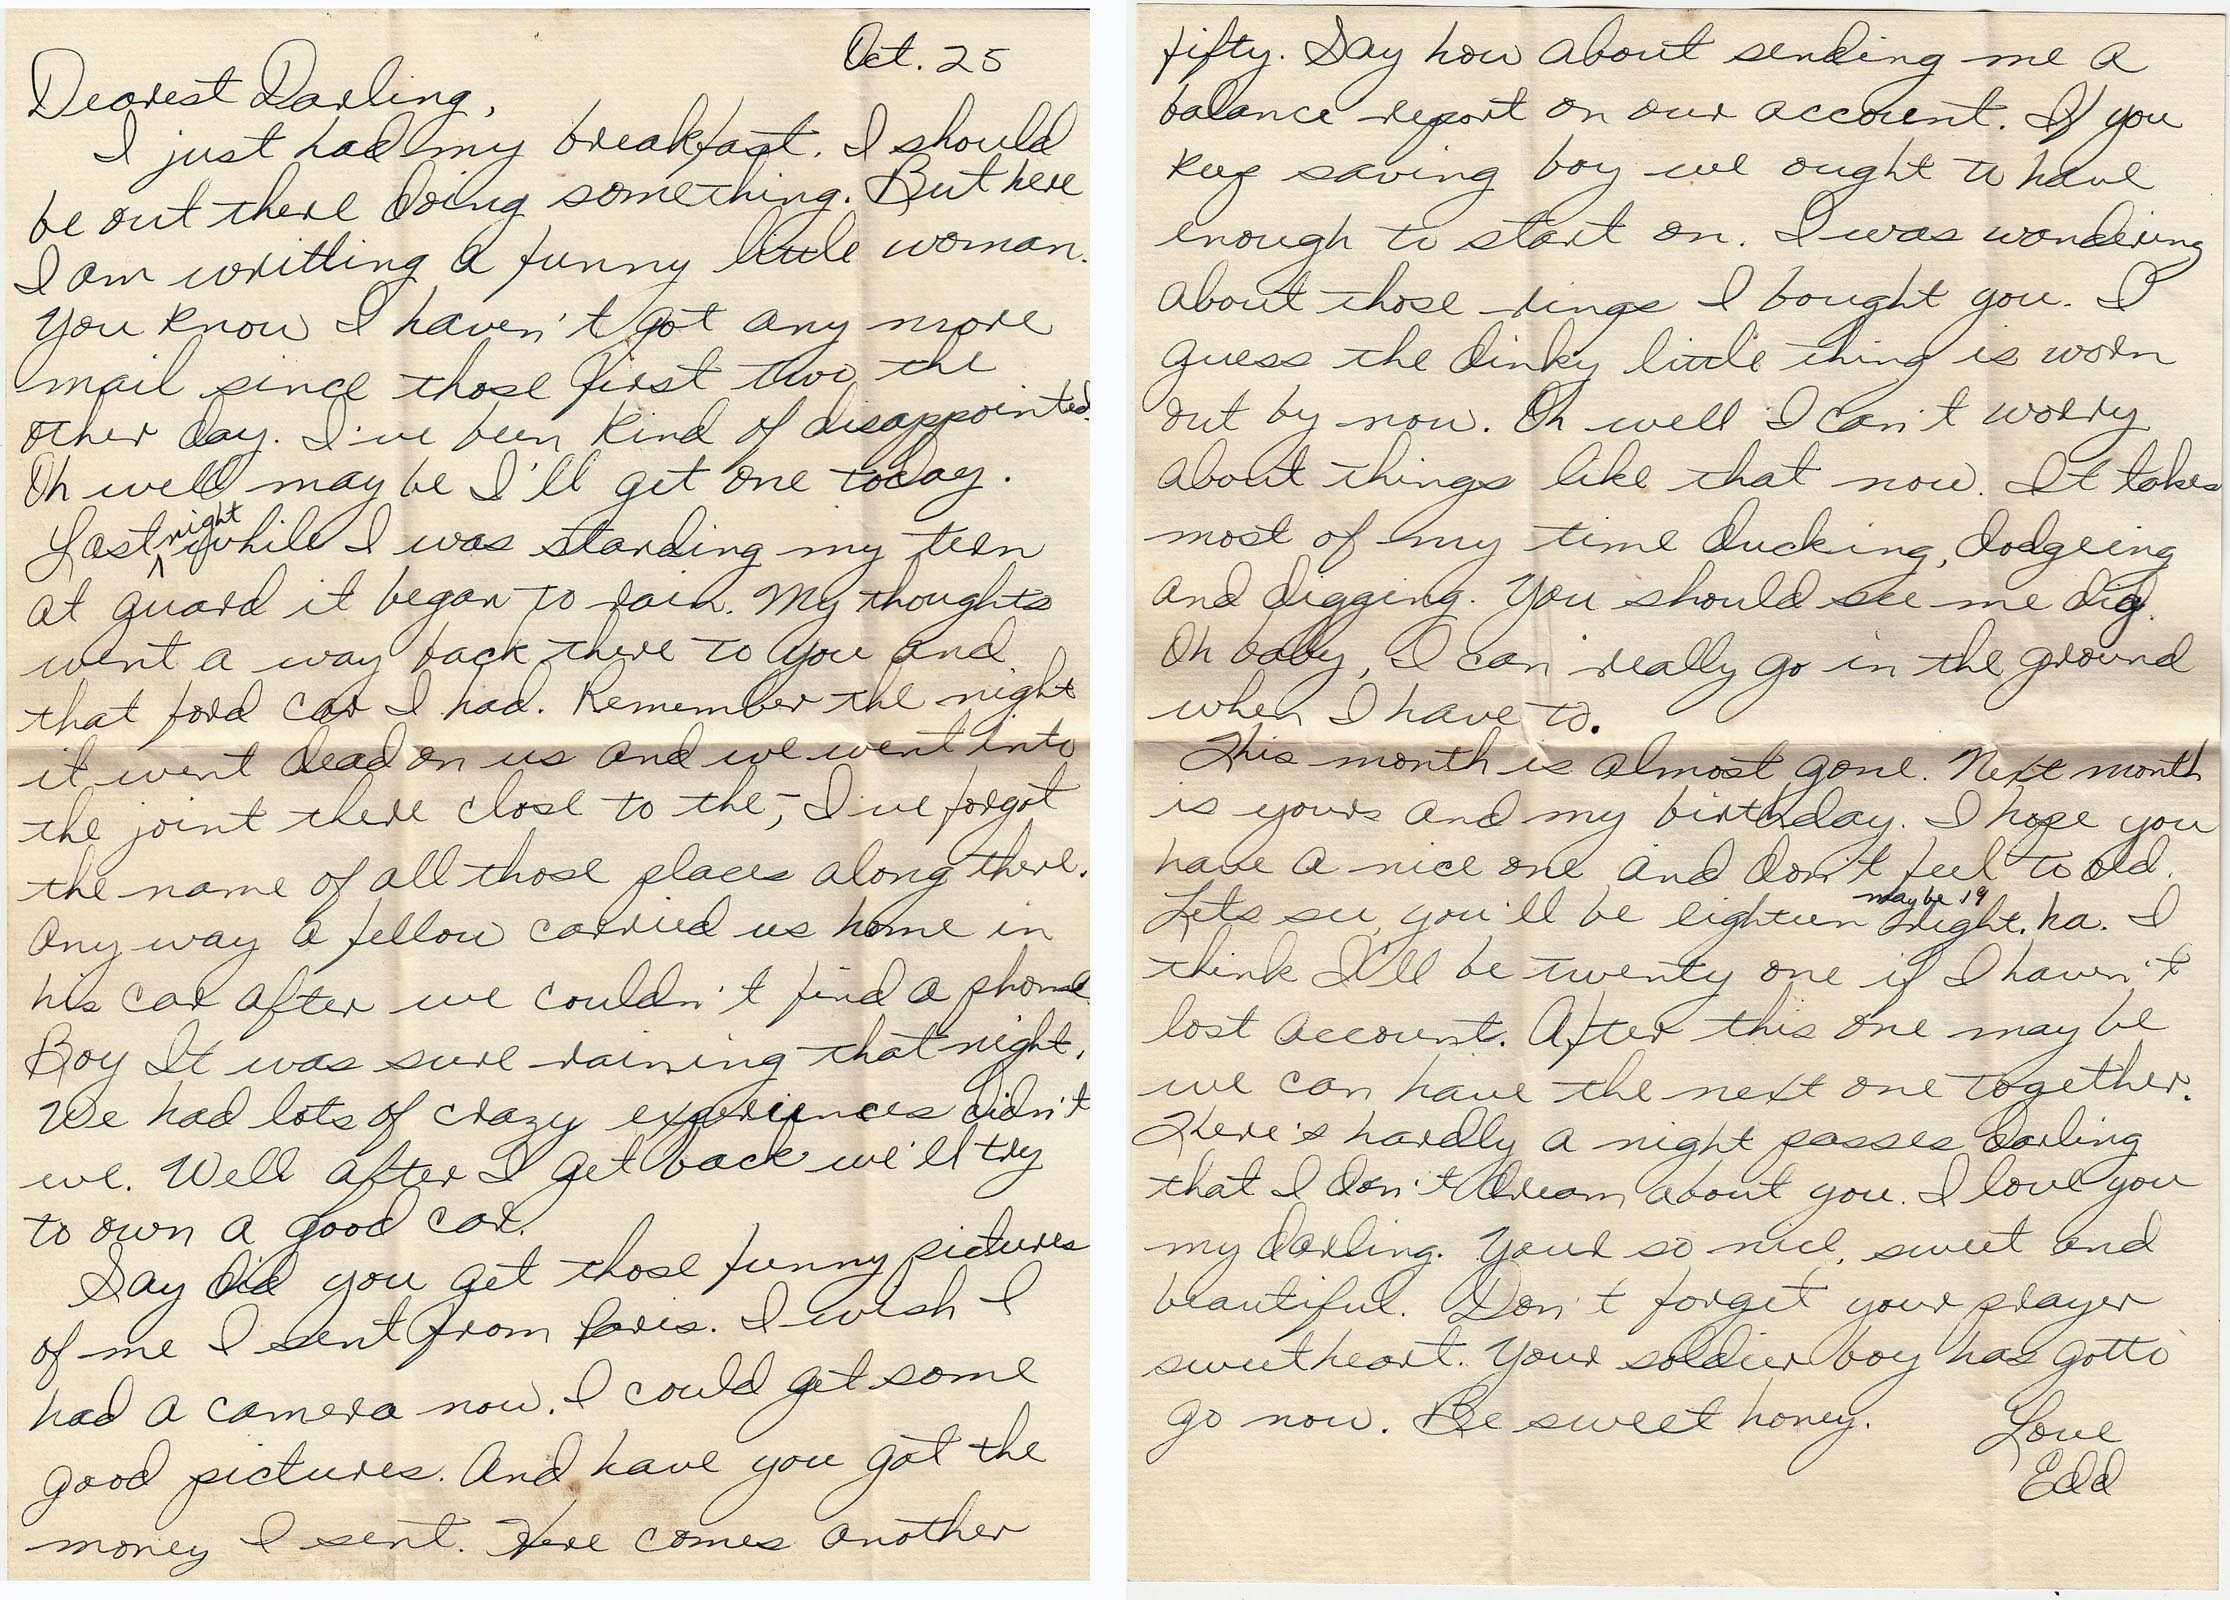 Oct. 25
Dearest Darling,
I just had my breakfast. I should
be out there doing something. But here
I am writting a funny little woman.
You know I haven't got any more
mail since those first two the
other day. I've been kind of disappointed.
Oh well may be I'll get one today.
Last night while I was standing my tern
at guard it began to rain. My thoughts
went a way back there to you and
that ford car I had. Remember the night
it went dead on us and we went into
the joint there close to the,— I've forgot
the name of all those places along there.
Any way a fellow carried us home in
his car after we couldn't find a phone.
Boy It was sure raining that night.
We had lots of crazy experiences didn't
we. Well after I get back we'll try
to own a good car.
Say did you get those funny pictures
of me I sent from Paris. I wish I
had a camera now. I could get some
good pictures. And have you got the
money I sent. Here comes another
fifty. Say how about sending me a
balance report on our account. If you
keep saving boy we ought to have
enough to start on. I was wondering
about those rings I bought you. I
guess the dinky little thing is worn
out by now. Oh well I can't worry
about things like that now. It takes
most of my time ducking, dodgeing
and digging. You should see me dig.
Oh baby, I can really go in the ground
when I have to.
This month is almost gone. Next month
is yours and my birthday. I hope you
have a nice one and don't feel to old.
Lets see, you'll be eighteen maybe 19 right. ha. I
think I'll be twenty one if I haven't
lost account. After this one may be
we can have the next one together.
There's hardly a night passes darling
that I don't dream about you. I love you
my darling. Your so nice, sweet and
beautiful. Don't forget your prayer
sweetheart. Your soldier boy has gotto
go now. Be sweet honey.
Love
Edd